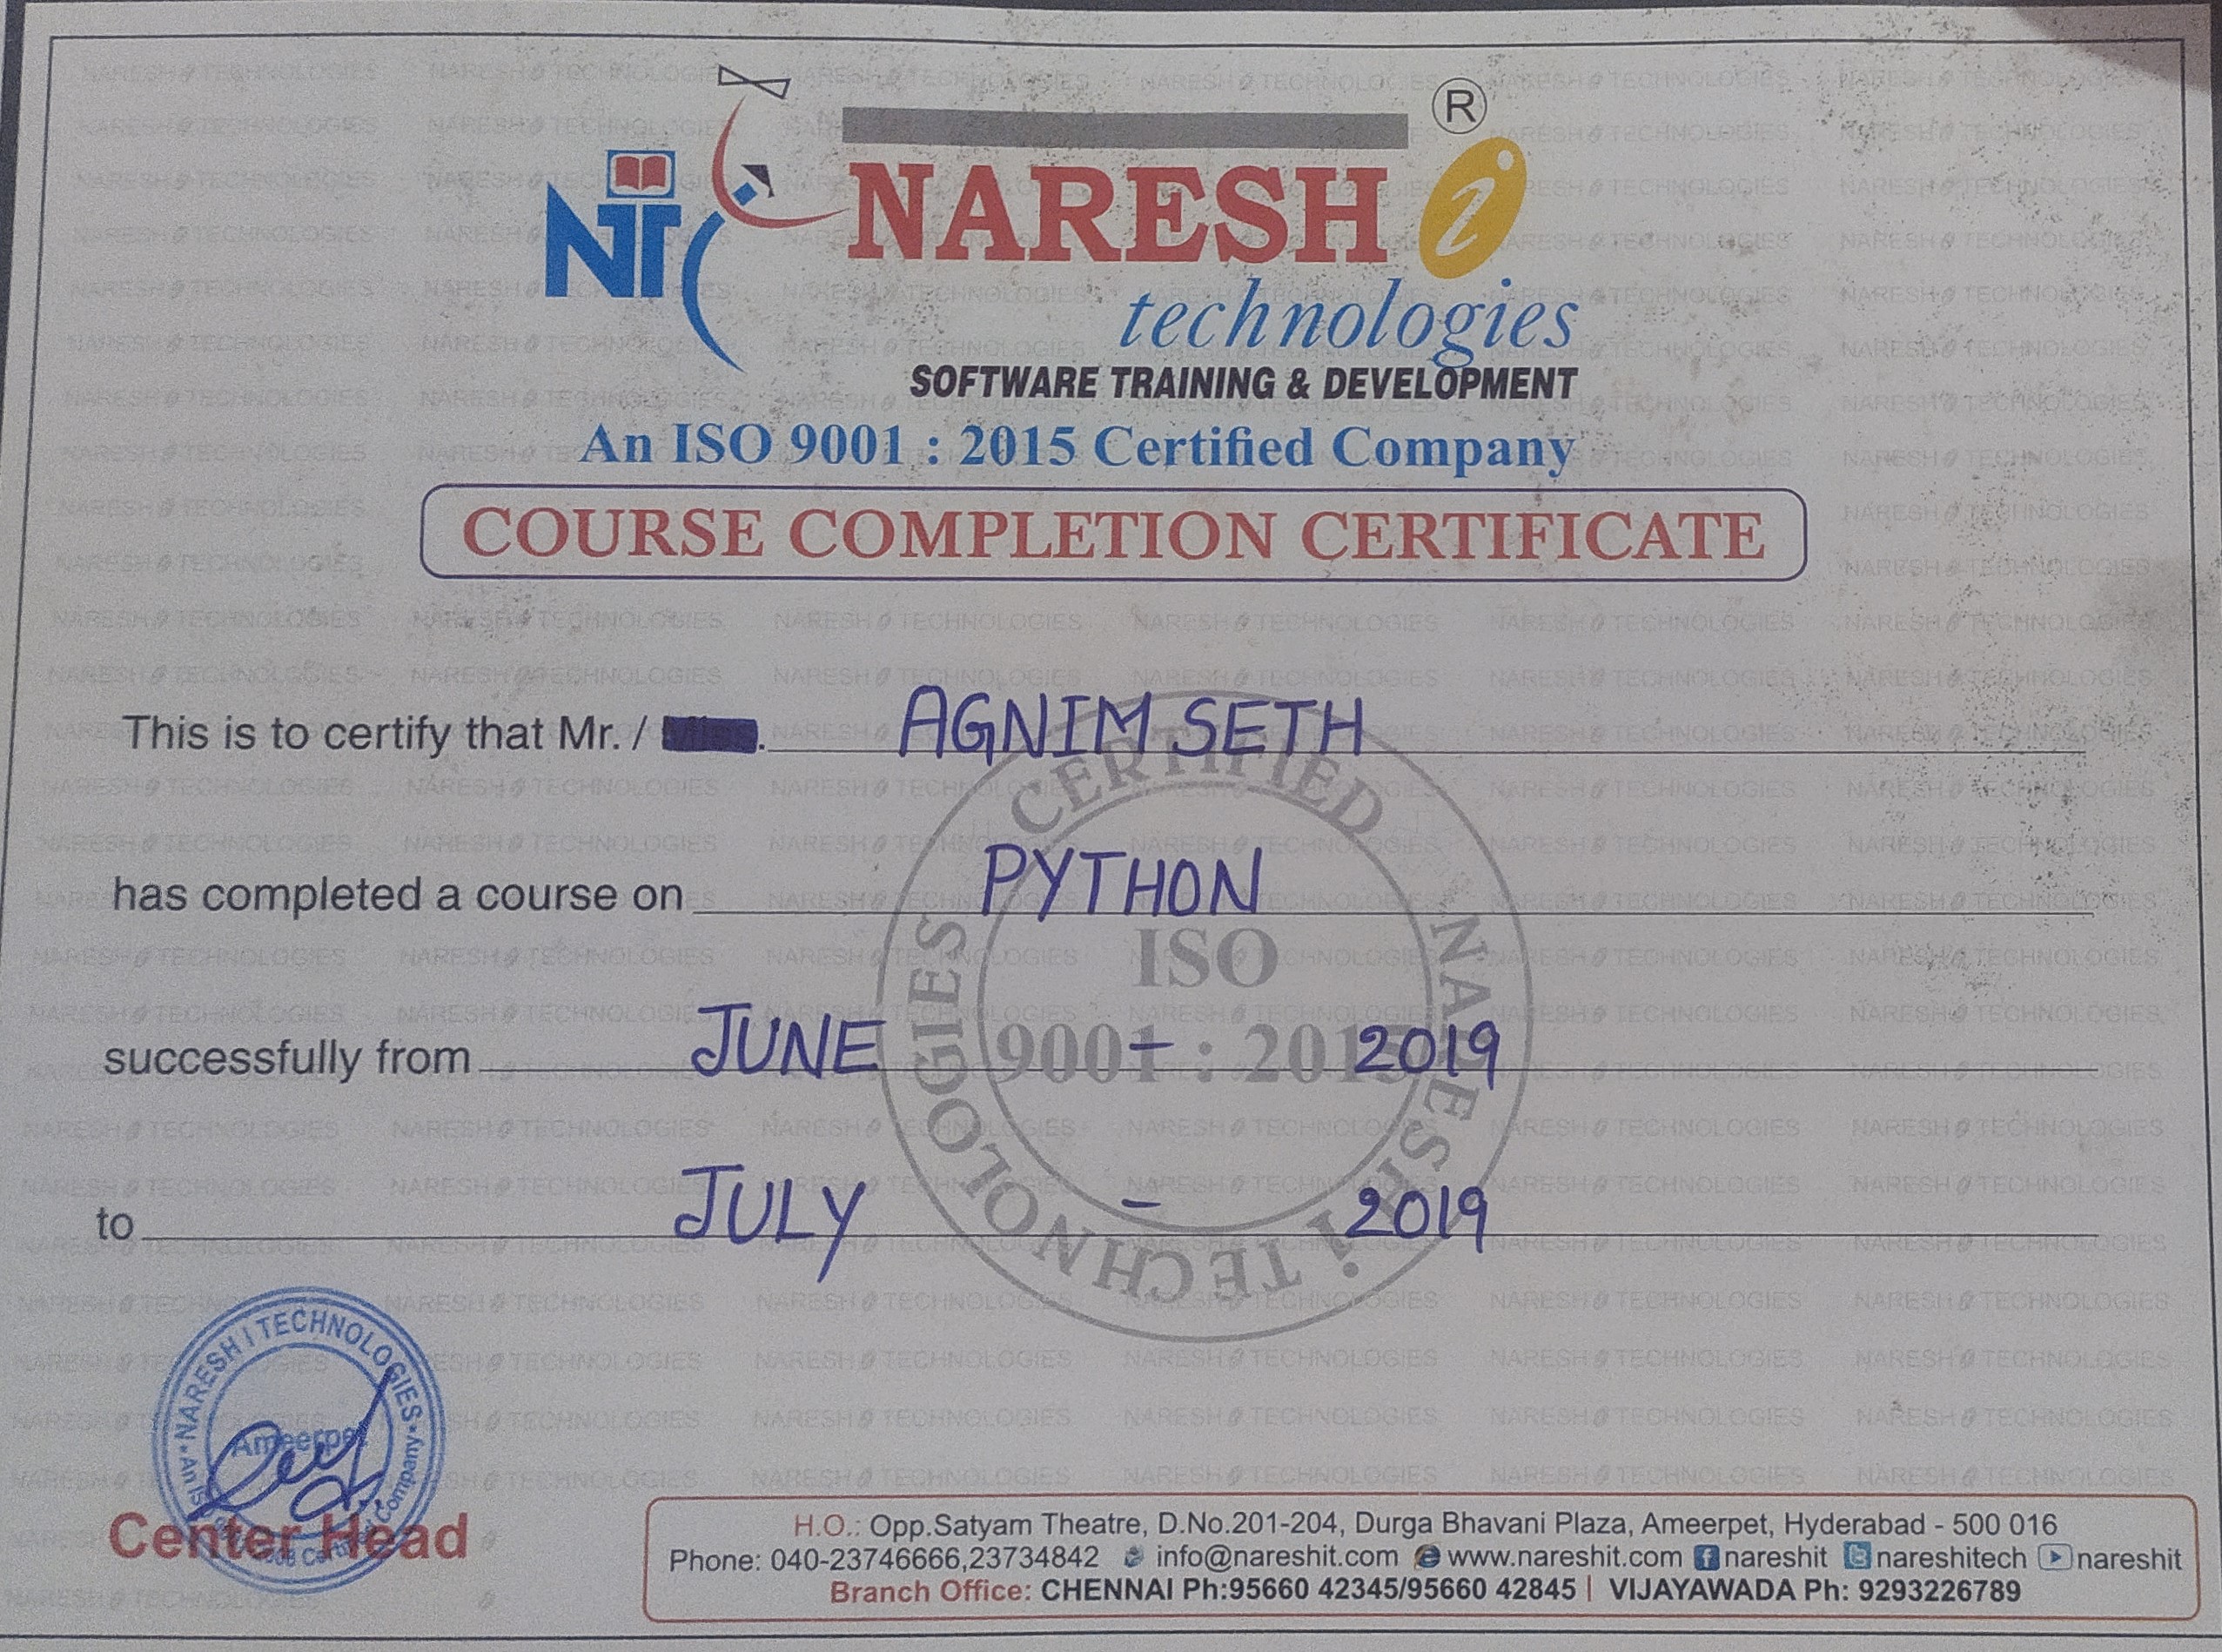 NARESH i ®
NIT
technologies
SOFTWARE TRAINING & DEVELOPMENT
An ISO 9001 : 2015 Certified Company
COURSE COMPLETION CERTIFICATE
This is to certify that Mr. / . AGNIM SETH
has completed a course on PYTHON
successfully from JUNE - 2019
to JULY - 2019
CERTIFIED NARESH i TECHNOLOGIES
ISO
9001 : 2015
NARESH I TECHNOLOGIES
Ameerpet
Center Head
H.O.: Opp.Satyam Theatre, D.No.201-204, Durga Bhavani Plaza, Ameerpet, Hyderabad - 500 016
Phone: 040-23746666,23734842 info@nareshit.com www.nareshit.com nareshit nareshitech nareshit
Branch Office: CHENNAI Ph:95660 42345/95660 42845 | VIJAYAWADA Ph: 9293226789